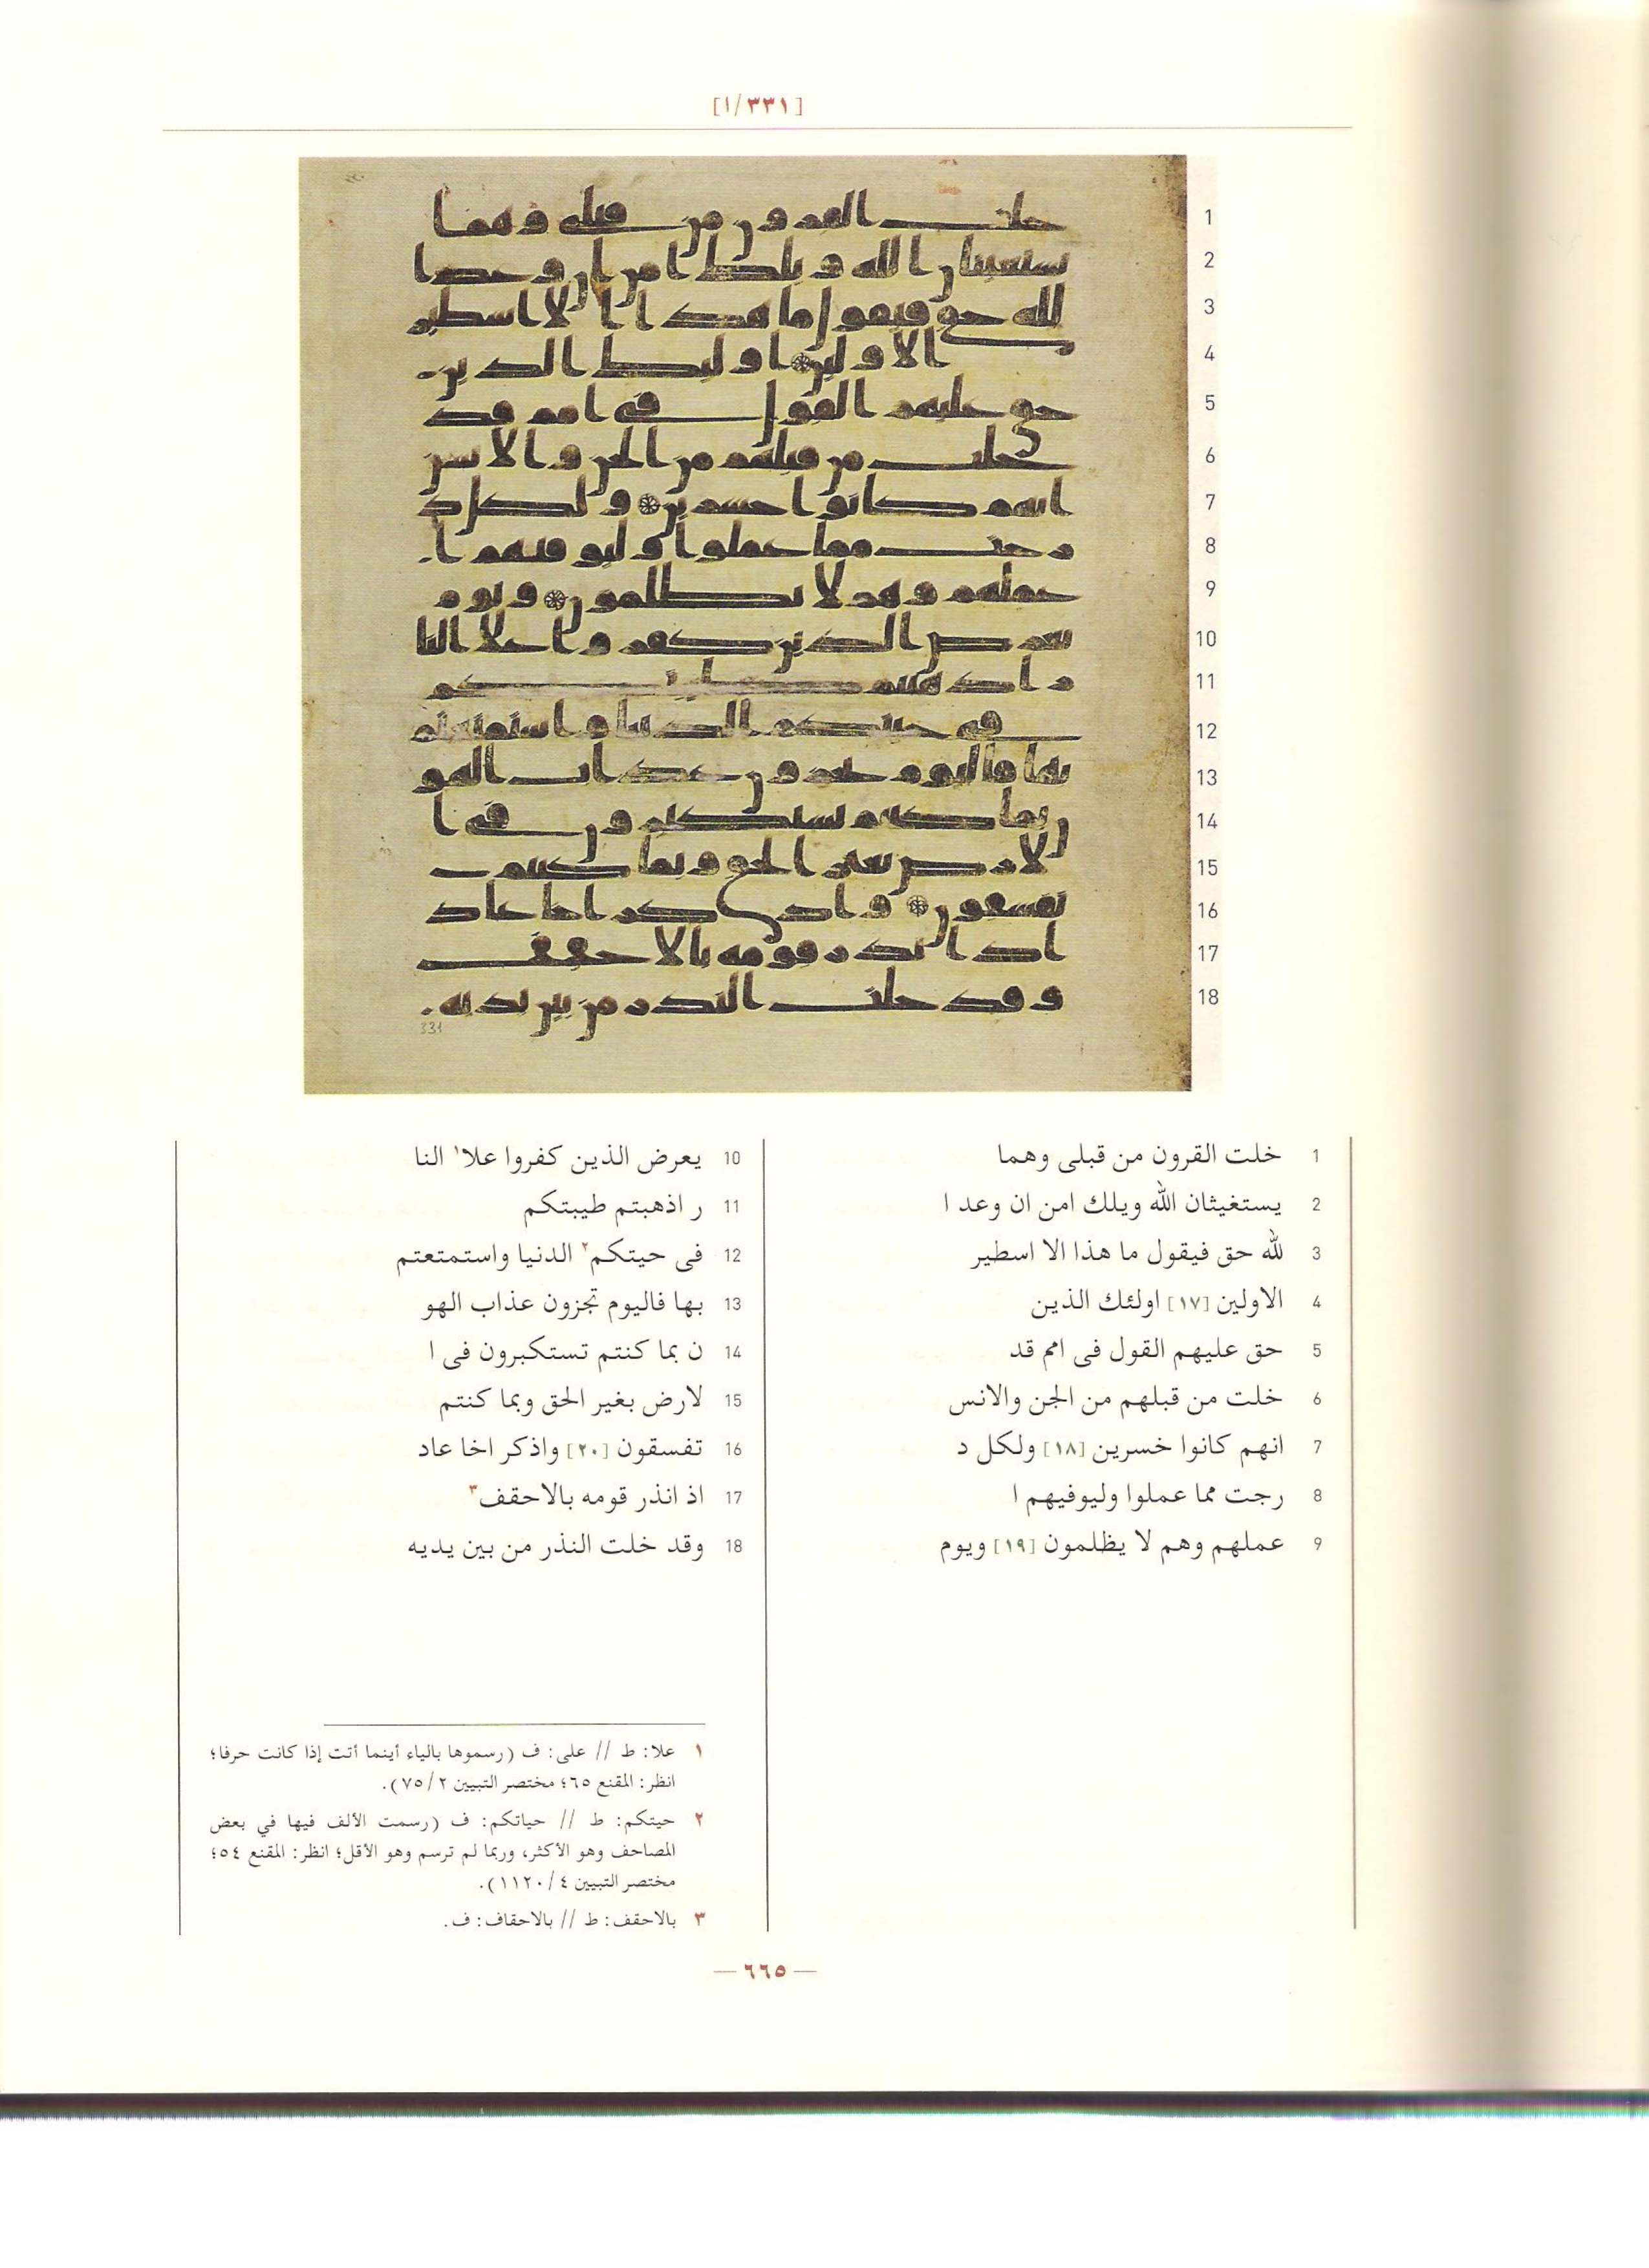 [١/٣٣١]
1 خلت القرون من قبلى وهما
2 يستغيثان الله ويلك امن ان وعد ا
3 لله حق فيقول ما هذا الا اسطير
4 الاولين [١٧] اولئك الذين
5 حق عليهم القول فى امم قد
6 خلت من قبلهم من الجن والانس
7 انهم كانوا خسرين [١٨] ولكل د
8 رجت مما عملوا وليوفيهم ا
9 عملهم وهم لا يظلمون [١٩] ويوم
10 يعرض الذين كفروا علا١ النا
11 ر اذهبتم طيبتكم
12 فى حيتكم٢ الدنيا واستمتعتم
13 بها فاليوم تجزون عذاب الهو
14 ن بما كنتم تستكبرون فى ا
15 لارض بغير الحق وبما كنتم
16 تفسقون [٢٠] واذكر اخا عاد
17 اذ انذر قومه بالاحقف٣
18 وقد خلت النذر من بين يديه
١ علا: ط // على: ف (رسموها بالياء أينما أتت إذا كانت حرفا؛
انظر: المقنع ٦٥؛ مختصر التبيين ٧٥/٢).
٢ حيتكم: ط // حياتكم: ف (رسمت الألف فيها في بعض
المصاحف وهو الأكثر، وربما لم ترسم وهو الأقل؛ انظر: المقنع ٥٤؛
مختصر التبيين ١١٢٠/٤).
٣ بالاحقف: ط // بالاحقاف: ف.
— ٦٦٥ —